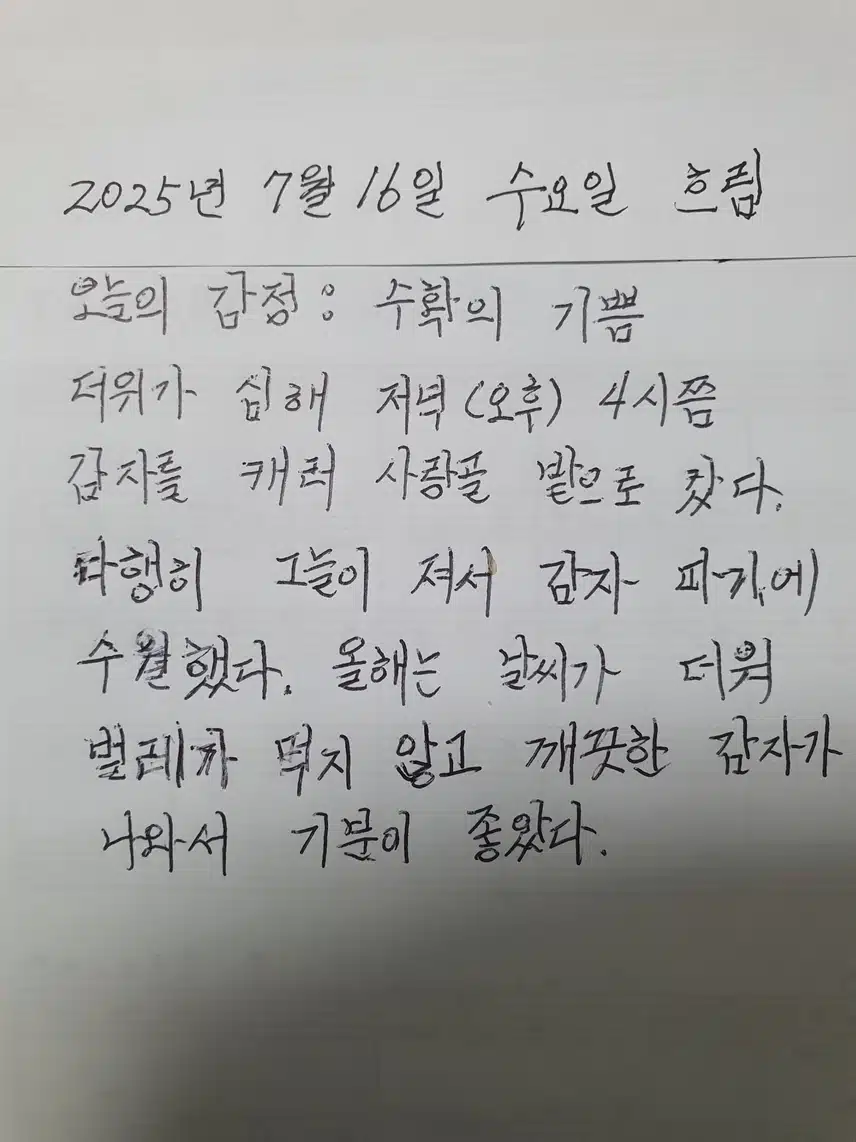 2025년 7월 16일 수요일 흐림
오늘의 감정 : 수확의 기쁨
더위가 심해 저녁 (오후) 4시쯤
감자를 캐러 사랑골 밭으로 갔다.
다행히 그늘이 져서 감자 파기에
수월했다. 올해는 날씨가 더워
벌레가 먹지 않고 깨끗한 감자가
나와서 기분이 좋았다.